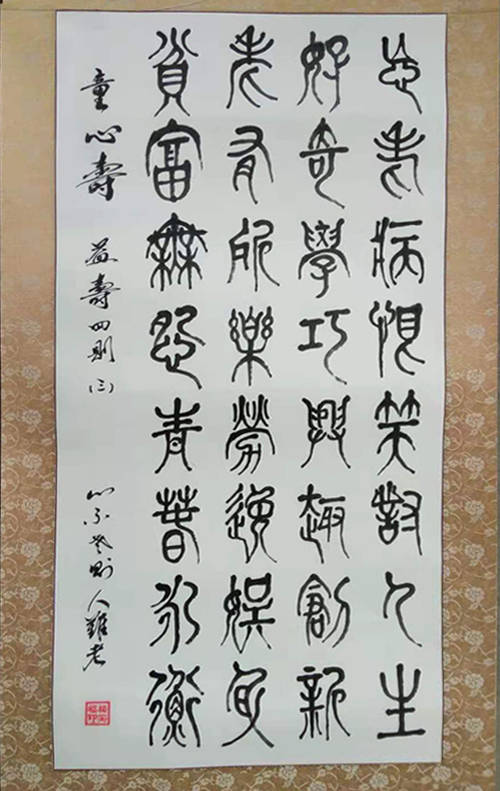 忘老病恨笑對人生
好奇學巧興趣創新
老有所樂勞逸娱身
貧富無怨青春永衡
童心壽 益壽四則(三) 心不老則人難老